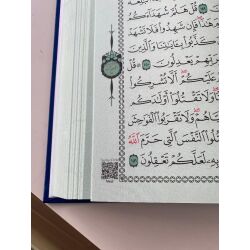 قُلْ هَلُمَّ شُهَدَآءَكُمُ
هَٰذَا فَإِن شَهِدُوا۟ فَلَا تَشْهَدْ
كَذَّبُوا۟ بِـَٔايَٰتِنَا وَٱلَّذِينَ
يَعْدِلُونَ ١٥٠ قُلْ
عَلَيْكُمْ أَلَّا تُشْرِكُوا۟
وَلَا تَقْتُلُوٓا۟ أَوْلَٰدَكُم
وَلَا تَقْرَبُوا۟ ٱلْفَوَٰحِشَ
ٱلنَّفْسَ ٱلَّتِى حَرَّمَ ٱللَّهُ
بِهِۦ لَعَلَّكُمْ تَعْقِلُونَ ١٥١